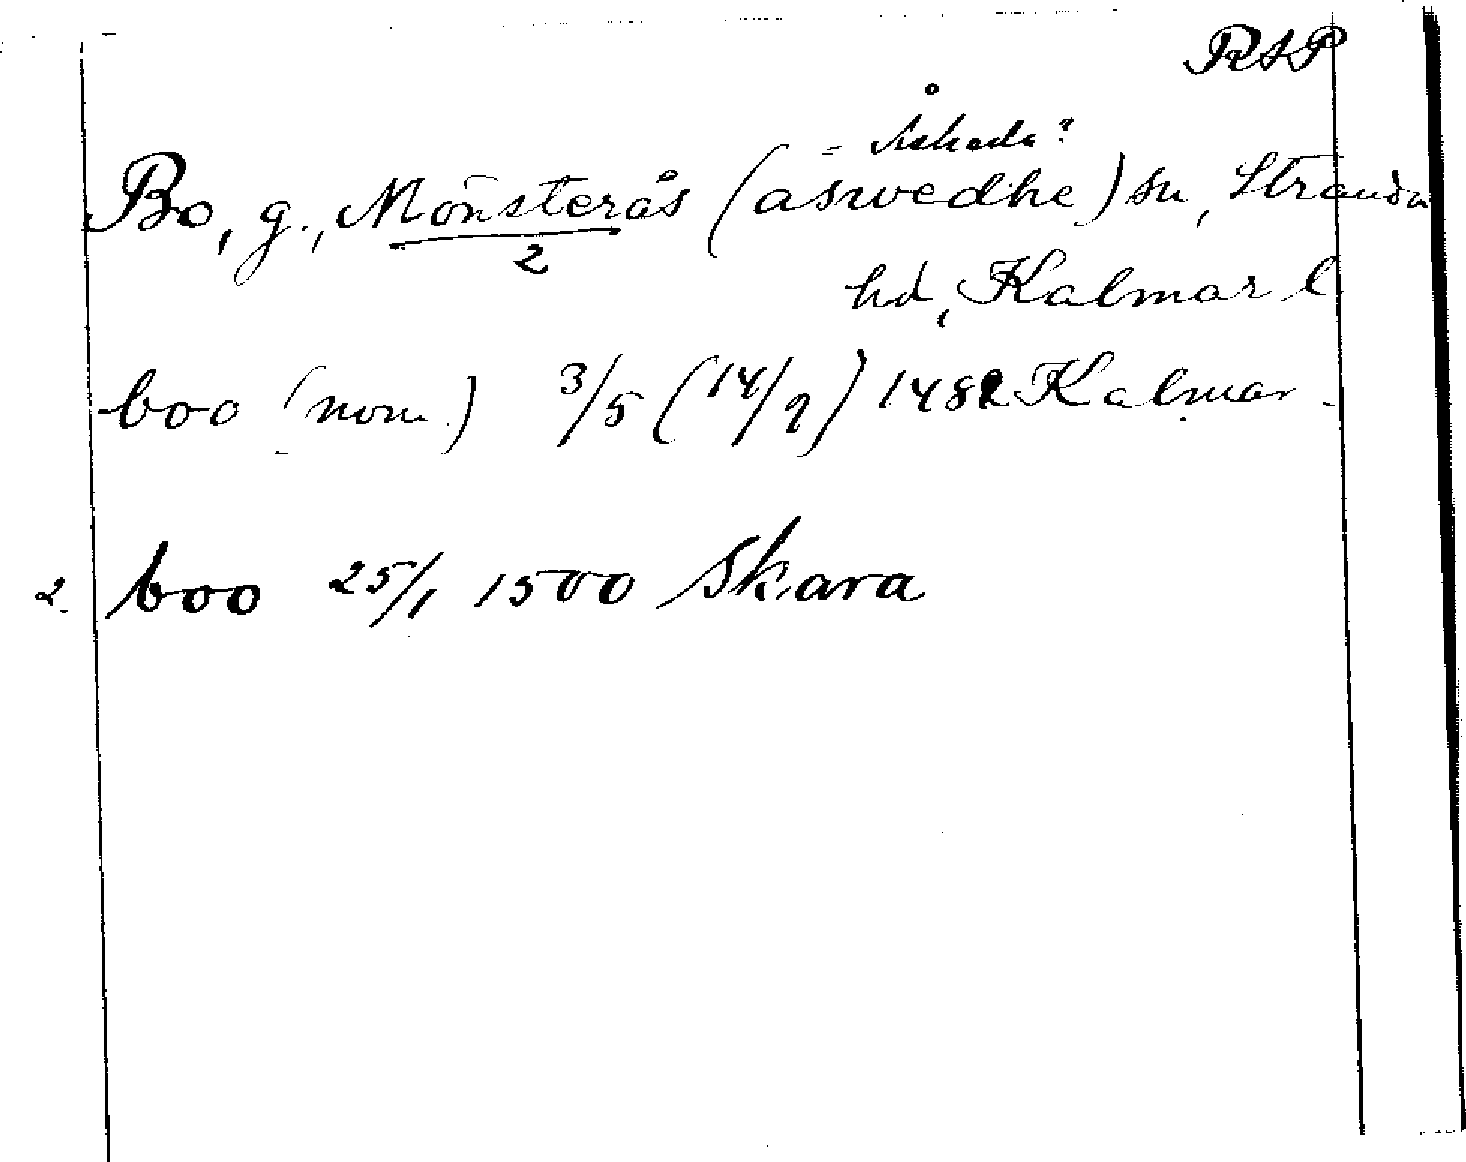 RAP
= Åskeda?
Bo, g., Mönsterås (aswedhe) sn, Stranda
2
hd, Kalmar l
boo (nom.) 3/5 (14/9) 1482 Kalmar.
2. boo 25/1 1500 Skara